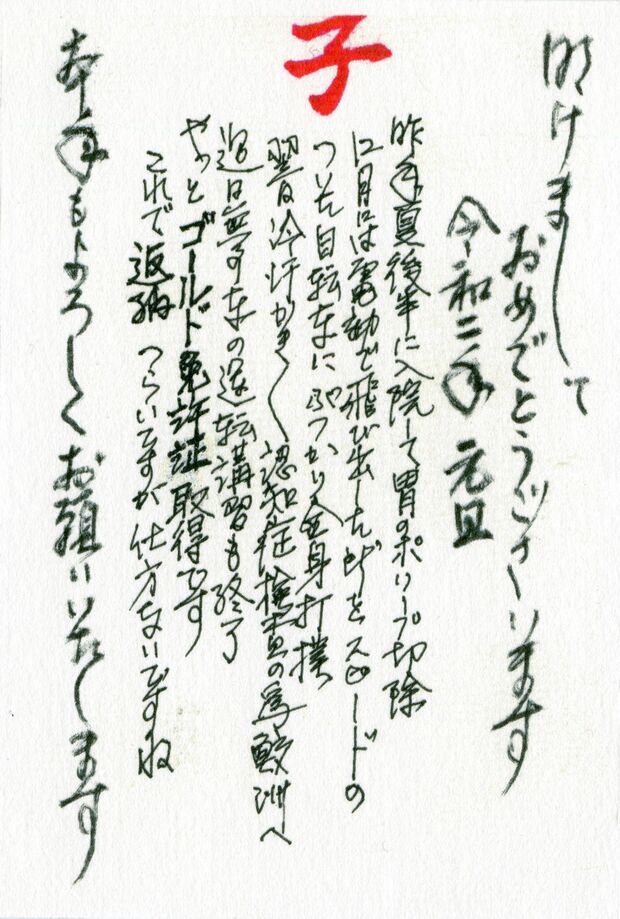 子
明けまして
おめでとうございます
令和二年 元旦
昨年夏後半に入院して胃のポリープ切除
12月には電動で飛び出した時をスピードの
ついた自転車にぶつかり全身打撲
翌日冷汗かきかき認知症検査の為鮫洲へ
週日無事車の運転講習も終了
やっとゴールド免許証取得です
これで返納 つらいですが仕方ないですね
本年もよろしくお願いいたします